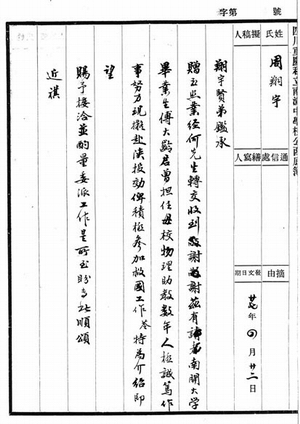 字第 號
四川重慶私立南渝中學校公函底簿
擬稿人
姓氏
周翔宇
繕寫人
通信處
發文日期
摘由
廿七年四月廿二日
翔宇賢弟鑑承
贈玉照業經何先生轉交收到謝謝茲有南開大學
畢業生傅大齡君曾担任母校物理助教數年人極誠篤作
事努力現擬赴陝投効俾積極參加救國工作特為介紹即
望
賜予接洽並酌量委派工作是所至盼專此順頌
近祺